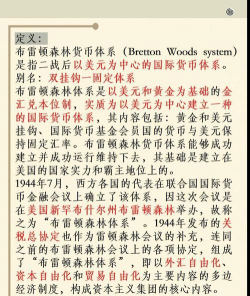 定义：
布雷顿森林货币体系（Bretton Woods system）
是指二战后以美元为中心的国际货币体系。
别名：双挂钩一固定体系
布雷顿森林体系是以美元和黄金为基础的金
汇兑本位制，实质为以美元为中心建立一种
的国际货币体系，其内容包括：黄金和美元
挂钩、国际货币基金会员国的货币与美元保
持固定汇率。布雷顿森林货币体系能够成功
建立并成功运行维持下去，其基础是建立在
美国的国家实力和霸主地位上的。
1944年7月，西方各国的代表在联合国国际货
币金融会议上确立了该体系，因这次会议是
在美国新罕布什尔州布雷顿森林举办，故称
之为“布雷顿森林体系”。1944年签发的关
税总协定作为布雷顿森林会议的补充，连同
之前的布雷顿森林会议上的各项协定，组成
了“布雷顿森林体系”，即以外汇自由化、
资本自由化和贸易自由化为主要内容的多边
经济制度，构成资本主义集团的核心内容。